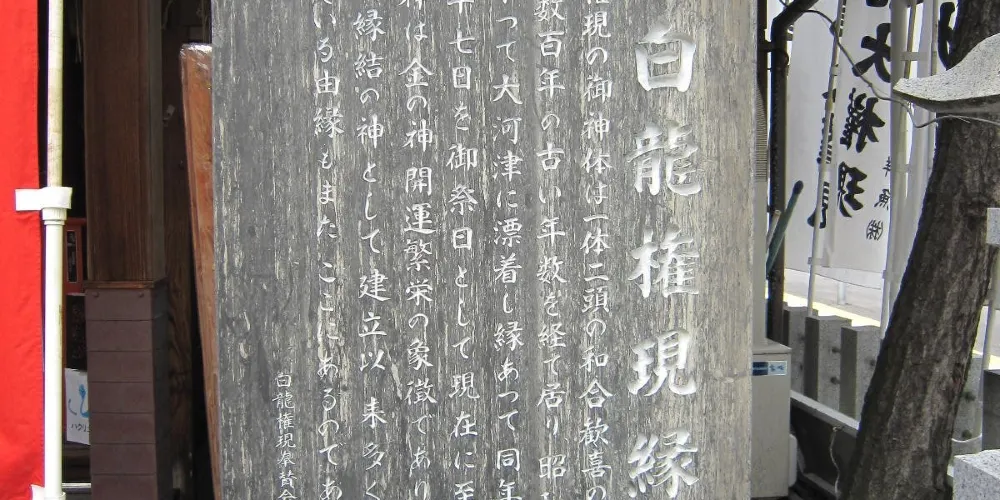 白龍権現縁
現の御神体は一体二頭の和合歓喜の
数百年の古い年数を経て居り昭
つて大河津に漂着し縁あつて同年
十七日を御祭日として現在に至
は金の神開運繁栄の象徴であり
縁結の神として建立以来多く
いる由縁もまたここにあるのであ
白龍権現奉賛会
大権現